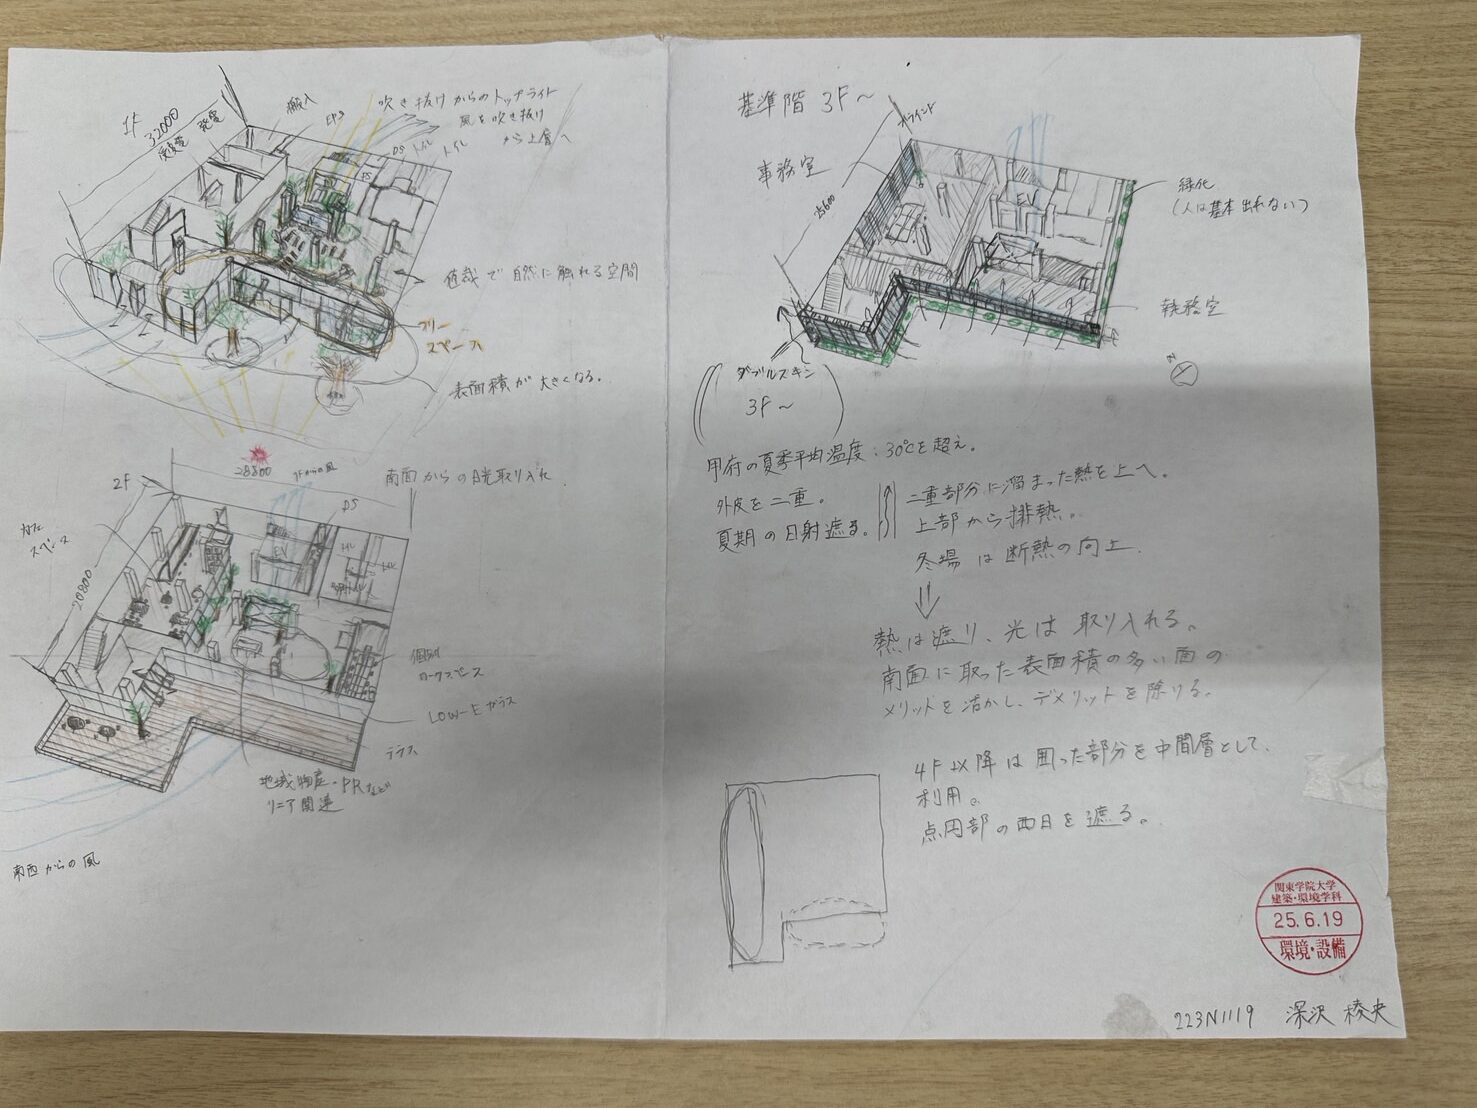 1F
32000
発電
搬入
EPS
吹き抜けからのトップライト
風を吹き抜け
から上層へ
DS
トイレ
トイレ
PS
植栽で自然に触れる空間
フリー
スペース
表面積が大きくなる。
28800
南面からの日光取り入れ
2F
1Fからの風
DS
カフェ
スペース
20800
EV
個別
ワークスペース
LOW-Eガラス
テラス
地域物産・PRなど
リニア関連
南西からの風
基準階 3F〜
ブラインド
事務室
25600
EV
緑化
(人は基本出れない)
執務室
N
ダブルスキン
3F〜
甲府の夏季平均温度:30℃を超え。
外皮を二重。
夏期の日射遮る。
二重部分に溜まった熱を上へ。
上部から排熱。
冬場は断熱の向上。
熱は遮り、光は取り入れる。
南面に取った表面積の多い面の
メリットを活かし、デメリットを除ける。
4F以降は囲った部分を中間層として、
利用。
点円部の西日を遮る。
関東学院大学
建築・環境学科
25.6.19
環境・設備
223N1119 深沢 稜央